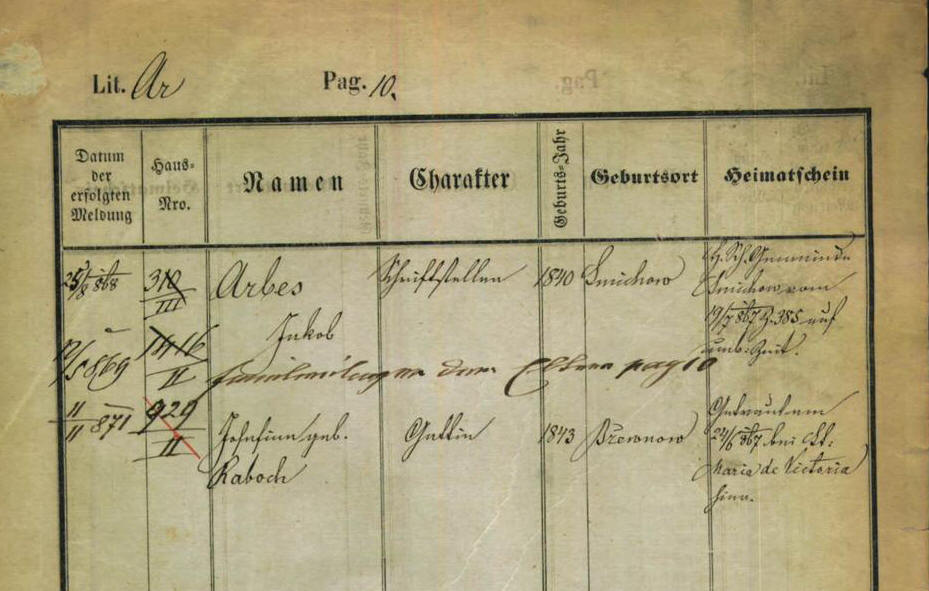 Lit. Ar Pag. 10.
Datum der erfolgten Meldung
Haus-Nro.
Namen
Charakter
Geburts-Jahr
Geburtsort
Heimatschein
25/8 868 310/III Arbes Schriftsteller 1840 Smichow H. Sch. Gemeinde
Smichow vom
19/7 867 Z. 385 auf
unb. Zeit.
Jakob
1/5 869 1416/II
pag 10
11/11 871 929/II Josefine geb. Gattin 1843 Břewnow Getraut am
24/6 867 bei St.
Raboch Maria de Victoria
hier.